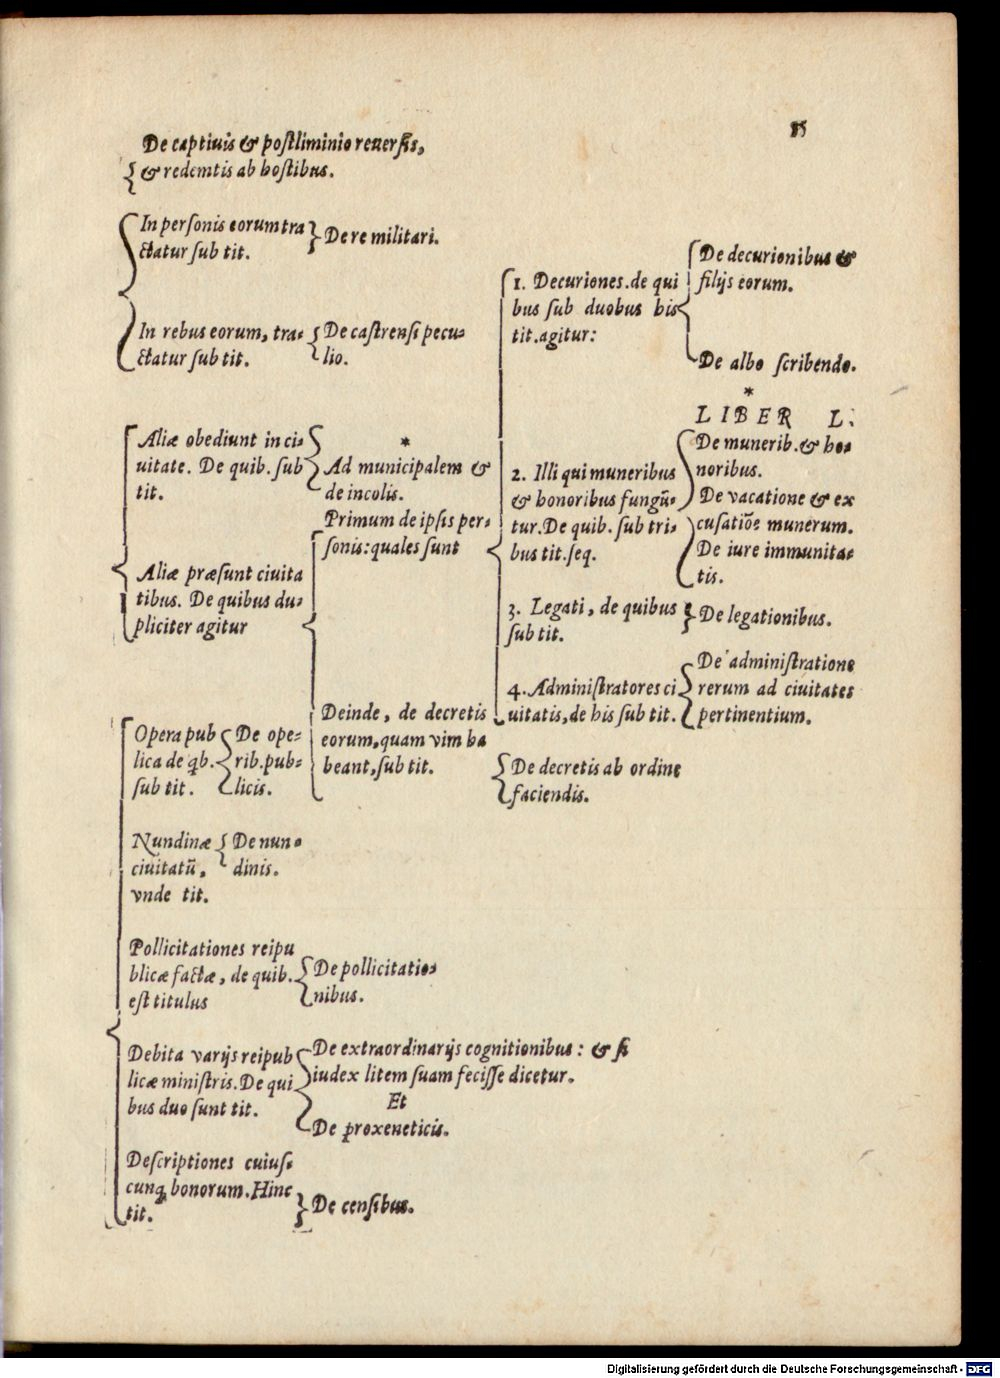 De captiuis & poſtliminio reuerſis,
& redemtis ab hoſtibus.
In perſonis eorum tra
ctatur ſub tit.
De re militari.
In rebus eorum, tra-
ctatur ſub tit.
De caſtrenſi pecu-
lio.
Aliæ obediunt in ci-
uitate. De quib. ſub
tit.
*
Ad municipalem &
de incolis.
Aliæ præſunt ciuita
tibus. De quibus du-
pliciter agitur
Primum de ipſis per-
ſonis: quales ſunt
1. Decuriones. de qui
bus ſub duobus his
tit. agitur:
De decurionibus &
filijs eorum.
De albo ſcribendo.
*
LIBER L.
2. Illi qui muneribus
& honoribus fungū-
tur. De quib. ſub tri-
bus tit. ſeq.
De munerib. & ho-
noribus.
De vacatione & ex
cuſatiōe munerum.
De iure immunita-
tis.
3. Legati, de quibus
ſub tit.
De legationibus.
4. Adminiſtratores ci
uitatis, de his ſub tit.
De adminiſtratione
rerum ad ciuitates
pertinentium.
Deinde, de decretis
eorum, quam vim ha
beant, ſub tit.
De decretis ab ordine
faciendis.
Opera pub
lica de qb.
ſub tit.
De ope-
rib. pub-
licis.
Nundinæ
ciuitatū,
vnde tit.
De nun-
dinis.
Pollicitationes reipu
blicæ factæ, de quib.
eſt titulus
De pollicitatio-
nibus.
Debita varijs reipub
licæ miniſtris. De qui
bus duo ſunt tit.
De extraordinarijs cognitionibus: & ſi
iudex litem ſuam feciſſe dicetur.
Et
De proxeneticis.
Deſcriptiones cuiuſ-
cunq; bonorum. Hinc
tit.
De cenſibus.
Digitalisierung gefördert durch die Deutsche Forschungsgemeinschaft - DFG